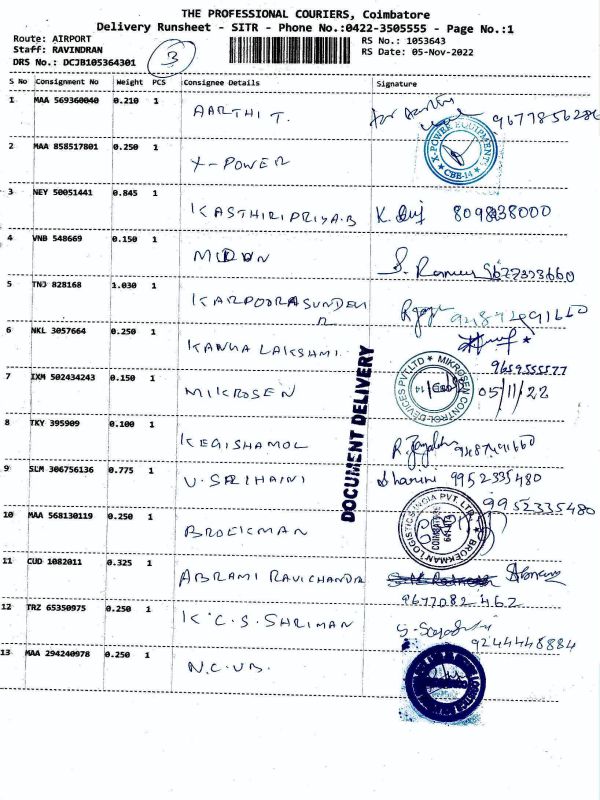 THE PROFESSIONAL COURIERS, Coimbatore
Delivery Runsheet - SITR - Phone No.:0422-3505555 - Page No.:1
Route: AIRPORT
RS No.: 1053643
Staff: RAVINDRAN
RS Date: 05-Nov-2022
DRS No.: DCJB105364301
3
S No Consignment No Weight PCS Consignee Details Signature
1 MAA 569360040 0.210 1 AARTHI T.
2 MAA 858517801 0.250 1 X-POWER
X-POWER EQUIPMENT CBE-14
3 NEY 50051441 0.845 1 KASTHIRIPRIYA.B
4 VNB 548669 0.150 1
5 TNJ 828168 1.030 1 KARPOORASUNDER
6 NKL 3057664 0.250 1 KANGA LAKSHMI.
9659555577
7 IXM 502434243 0.150 1 MIKROSEN 05/11/22
MIKROSEN CONTROL DEVICES PVT LTD
8 TKY 395909 0.100 1 KEGISHAMOL
9 SLM 306756136 0.775 1 V. SRIHAINI Dharini 9952335480
9952335480
10 MAA 568130119 0.250 1 BROEKMAN
BROEKMAN LOGISTICS INDIA PVT. LTD.
COIMBATORE
11 CUD 1082011 0.325 1 ABRAMI RAVICHANDR
9677082462
12 TRZ 65350975 0.250 1 K.C.S. SHRIMAN
9244448884
13 MAA 294240978 0.250 1 N.C.UB.
DOCUMENT DELIVERY